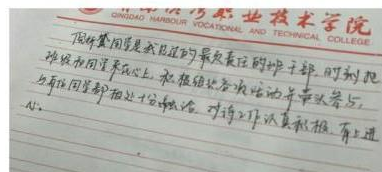 职业技术学院
QINGDAO HARBOUR VOCATIONAL AND TECHNICAL COLLEGE
同学是我见过的最负责任的班干部,时刻把
班级和同学来在心上,积极组织各项活动并带头参与,
与每位同学都相处十分融洽,对待工作认真积极,有上进
心。